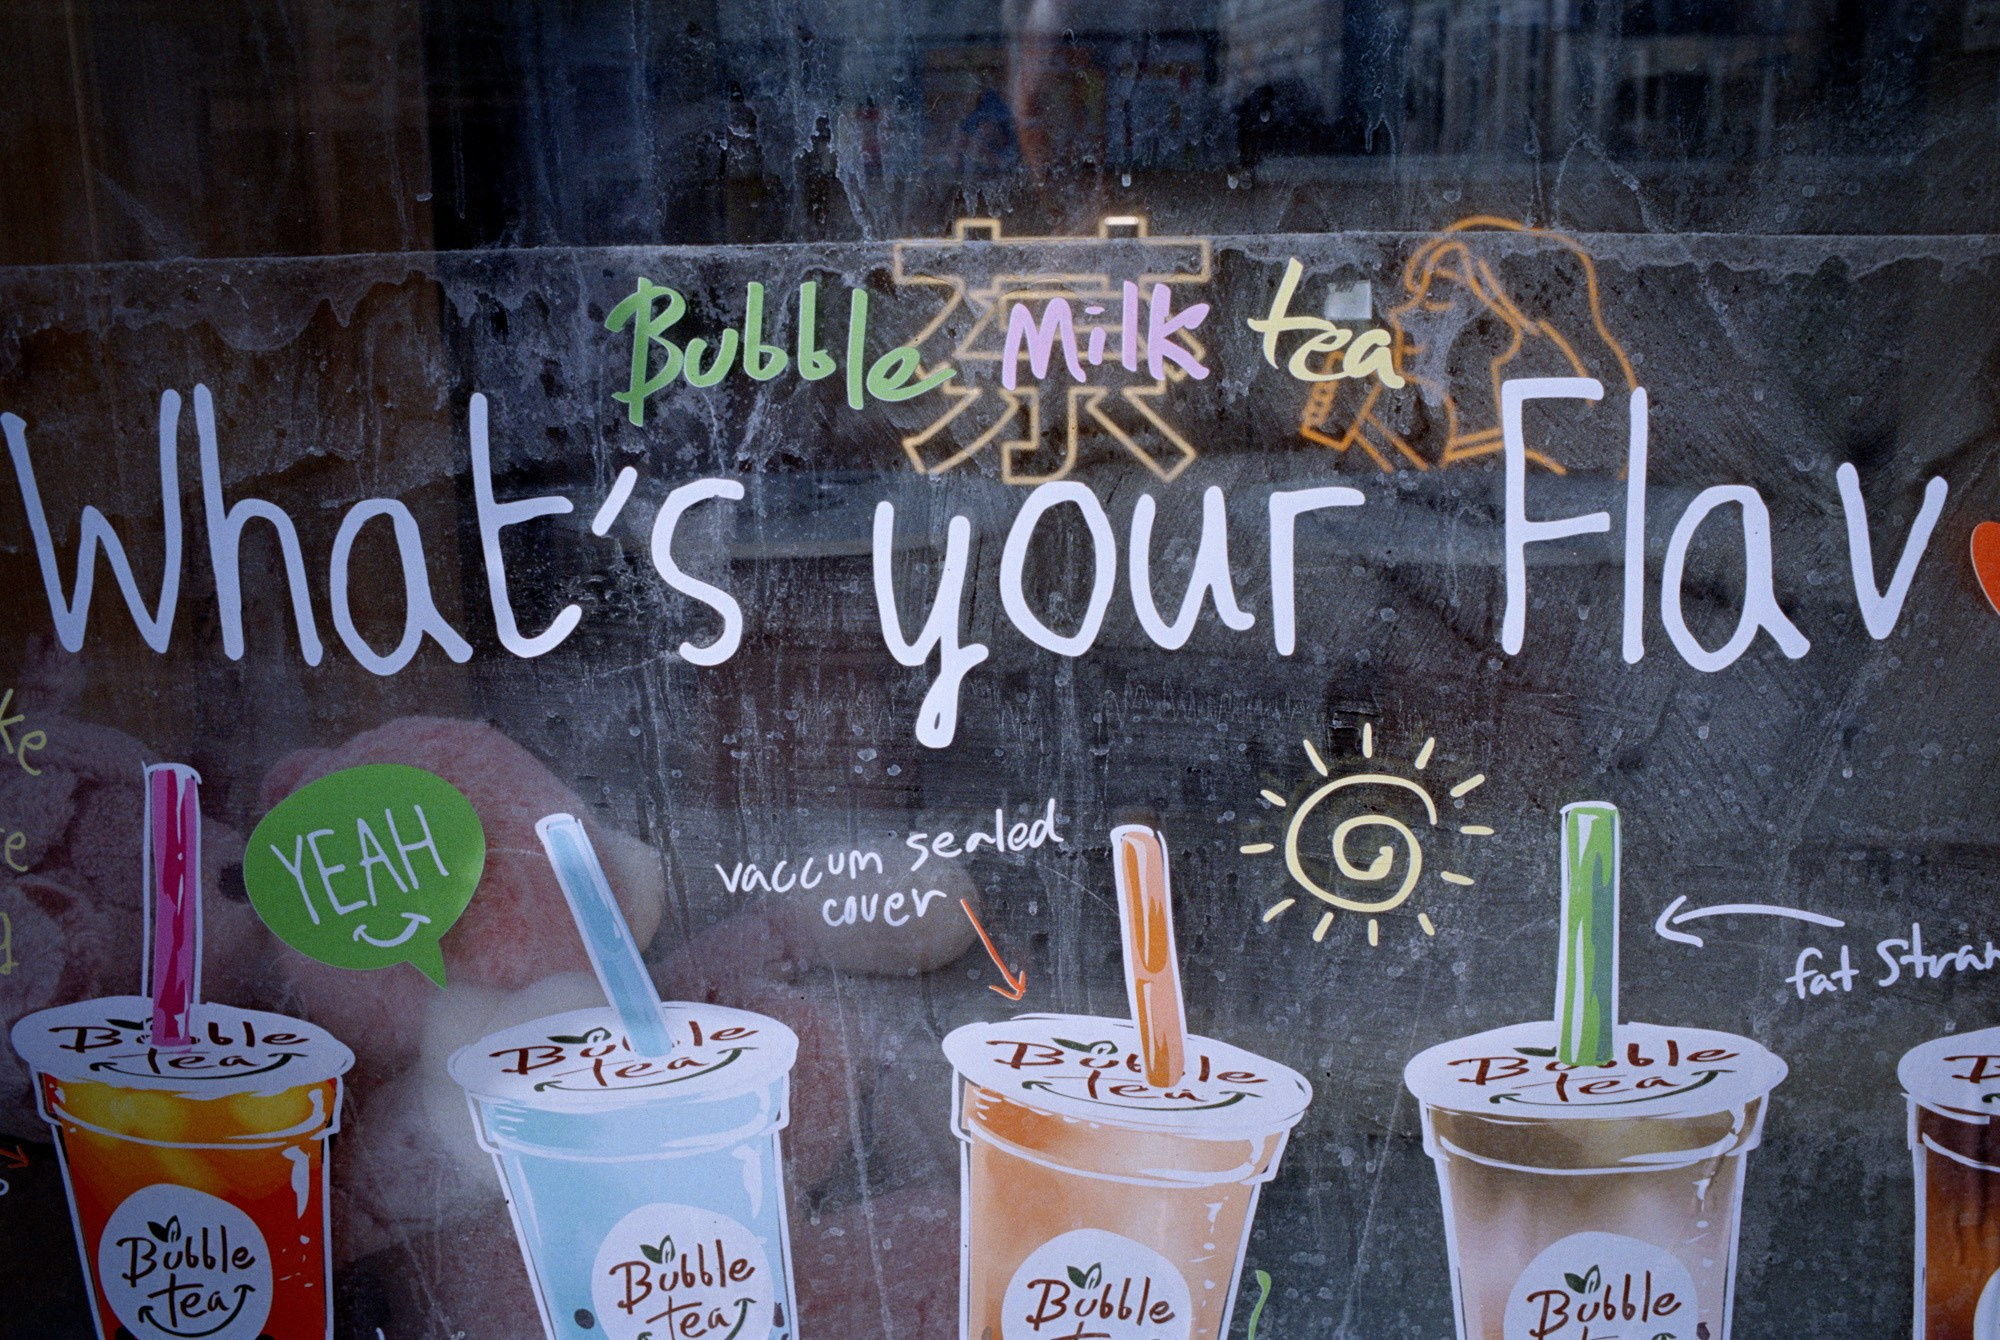 茶
Bubble Milk tea
What's your Flav
ke
YEAH
vaccum sealed
cover
fat Straw
Bubble
Tea
Bubble
Tea
Bubble
Tea
Bubble
Tea
B
Bubble
tea
Bubble
tea
Bubble
Bubble